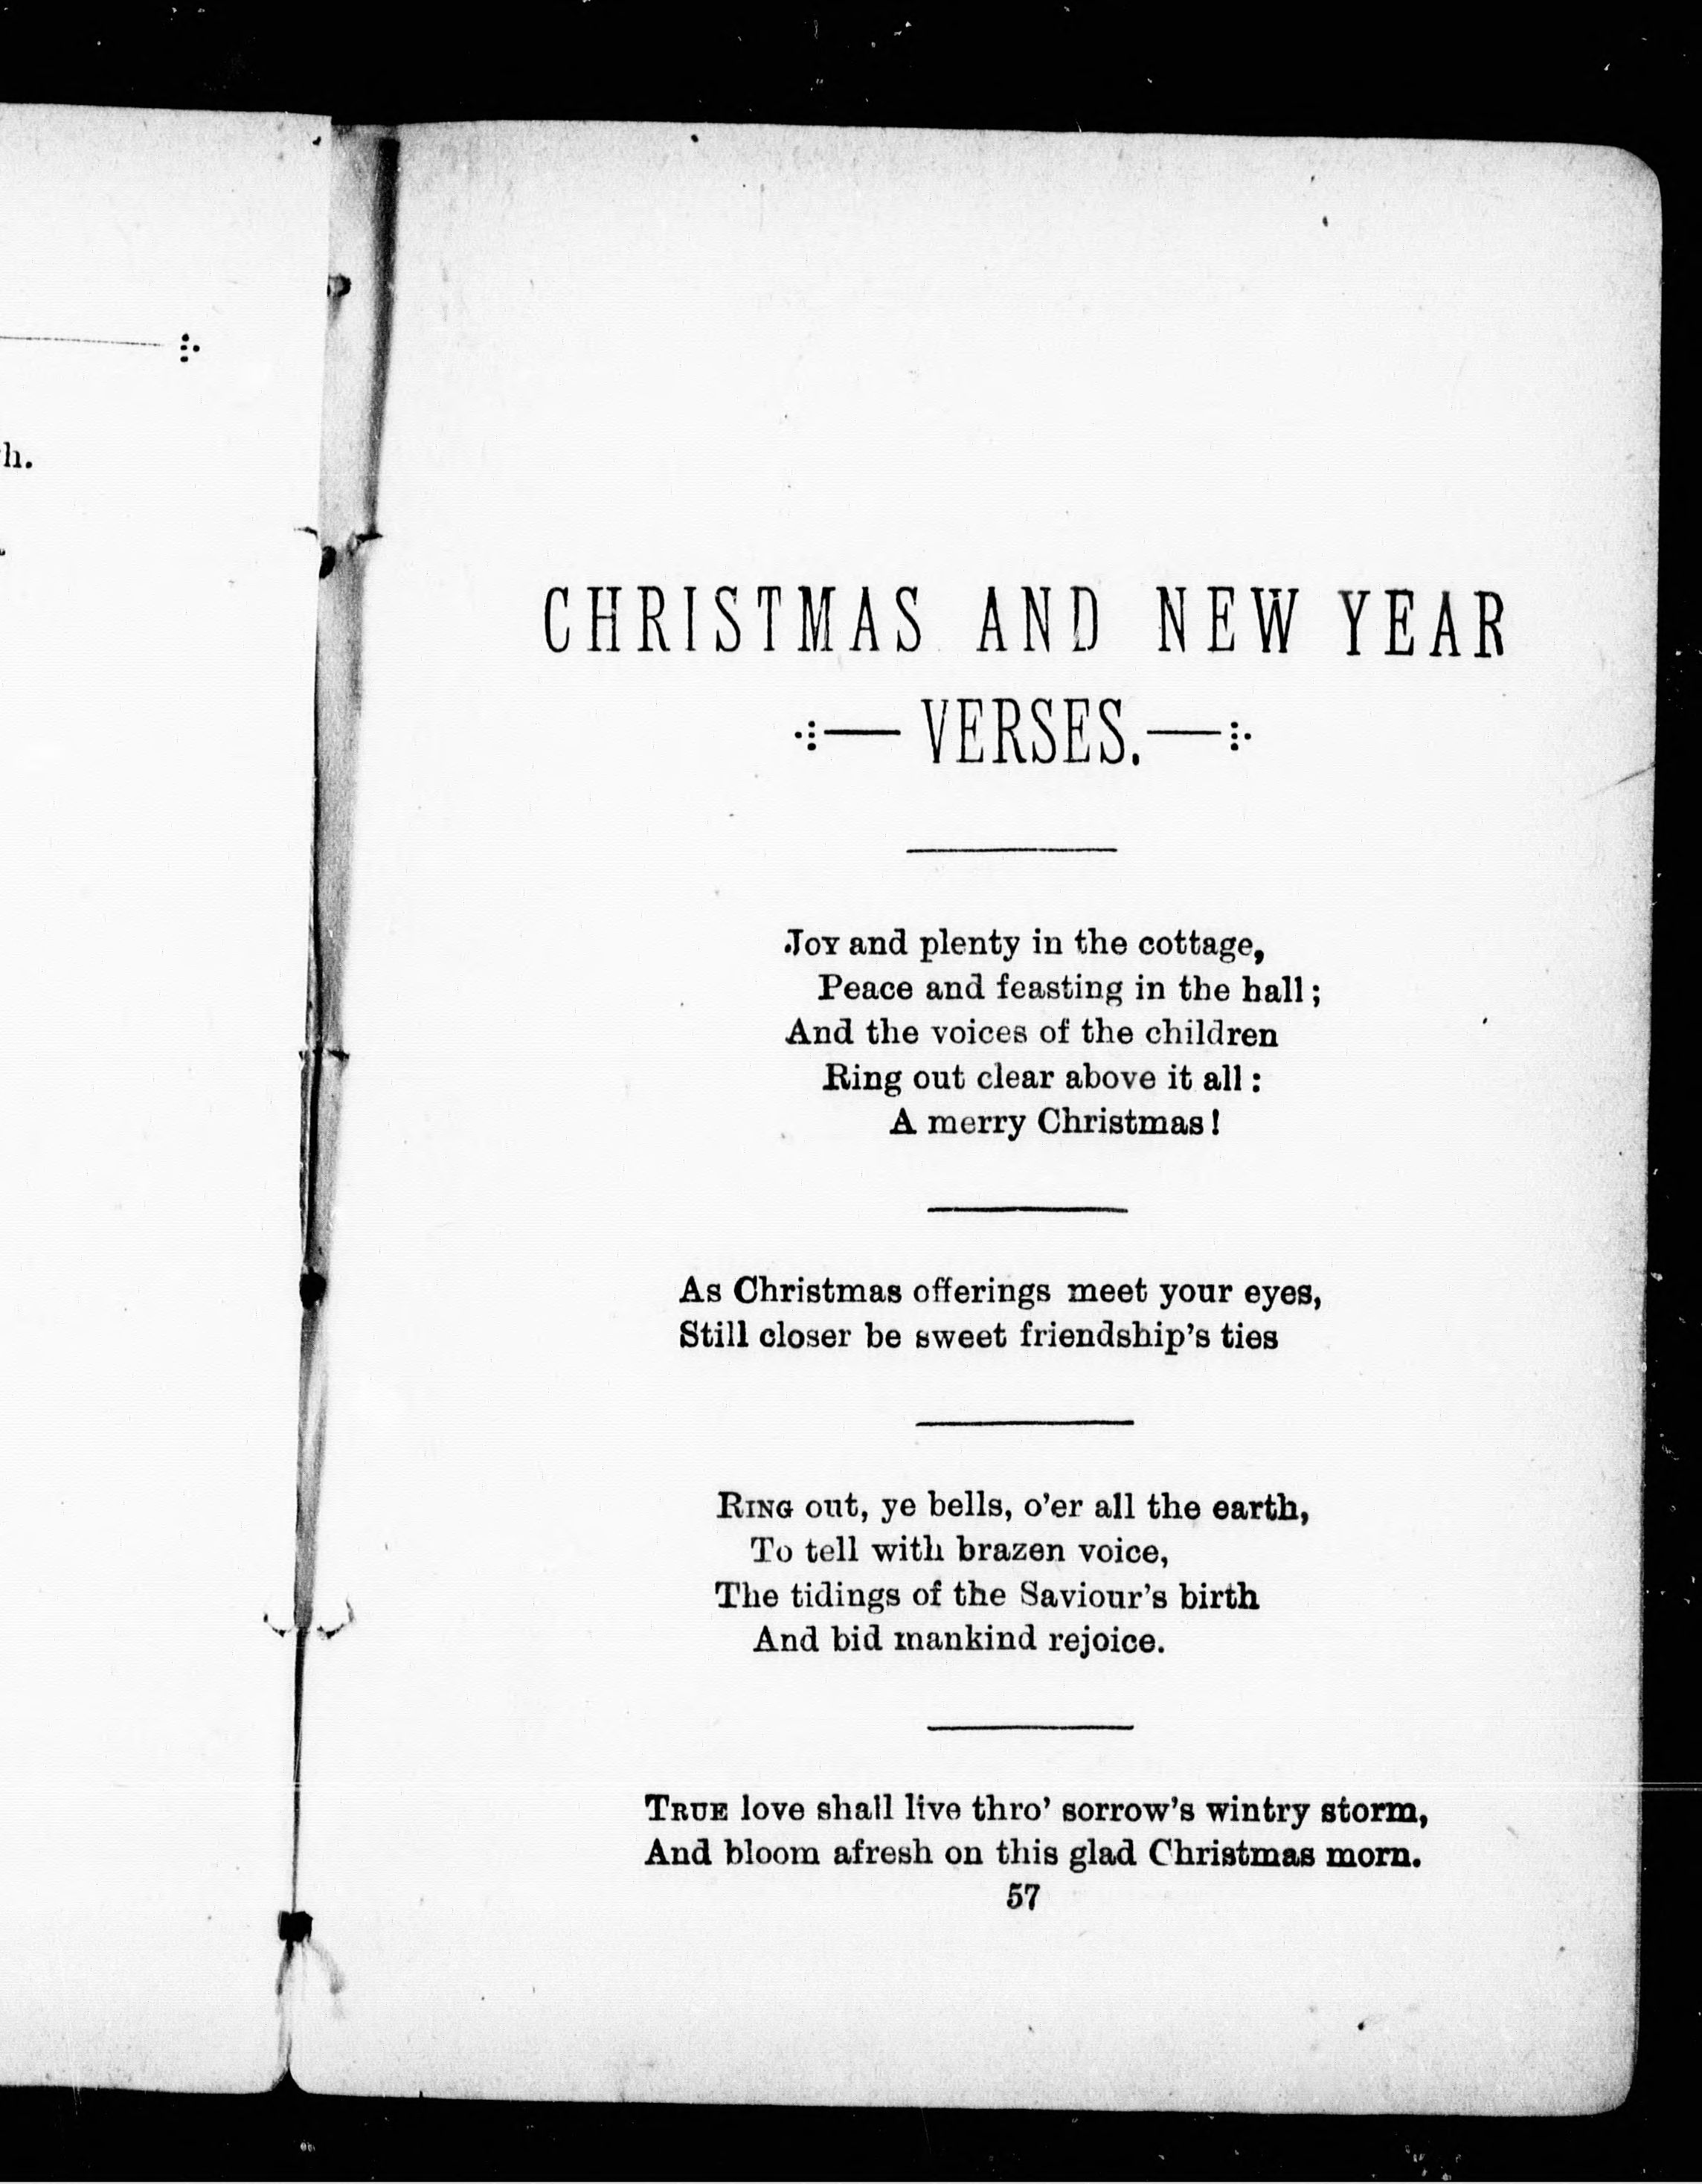 h.
CHRISTMAS AND NEW YEAR
VERSES.
JOY and plenty in the cottage,
Peace and feasting in the hall;
And the voices of the children
Ring out clear above it all:
A merry Christmas!
As Christmas offerings meet your eyes,
Still closer be sweet friendship's ties
RING out, ye bells, o'er all the earth,
To tell with brazen voice,
The tidings of the Saviour's birth
And bid mankind rejoice.
TRUE love shall live thro' sorrow's wintry storm,
And bloom afresh on this glad Christmas morn.
57